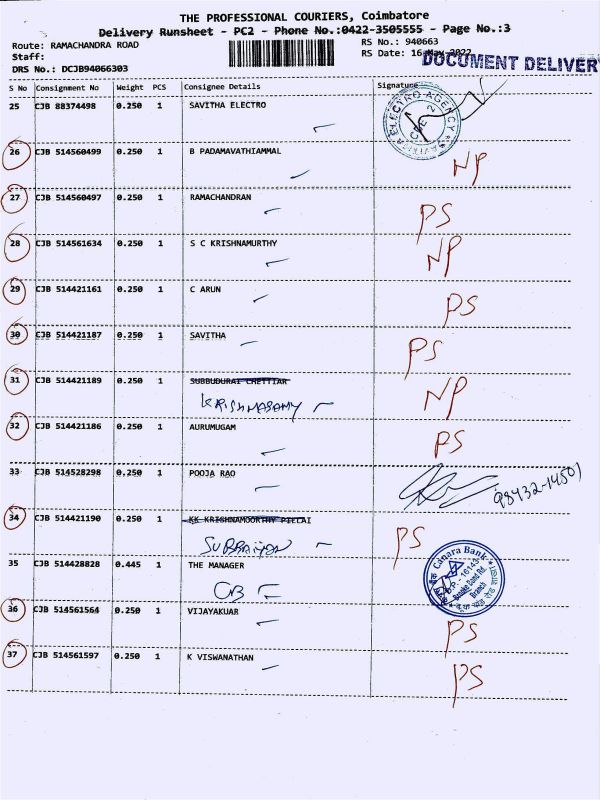 THE PROFESSIONAL COURIERS, Coimbatore
Delivery Runsheet - PC2 - Phone No.:0422-3505555 - Page No.:3
Route: RAMACHANDRA ROAD
RS No.: 940663
Staff:
RS Date: 16-May-2022
DOCUMENT DELIVER
DRS No.: DCJB94066303
S No Consignment No Weight PCS Consignee Details Signature
25 CJB 88374498 0.250 1 SAVITHA ELECTRO
ELECTRO AGENCY
CBE 2
26 CJB 514560499 0.250 1 B PADAMAVATHIAMMAL NP
27 CJB 514560497 0.250 1 RAMACHANDRAN PS
28 CJB 514561634 0.250 1 S C KRISHNAMURTHY NP
29 CJB 514421161 0.250 1 C ARUN PS
30 CJB 514421187 0.250 1 SAVITHA PS
31 CJB 514421189 0.250 1 SUBBUDURAI CHETTIAR NP
KRISHNASAMY
32 CJB 514421186 0.250 1 AURUMUGAM PS
33 CJB 514528298 0.250 1 POOJA RAO 98432-14501
34 CJB 514421190 0.250 1 KK KRISHNAMOORTHY PILLAI PS
SUBRAIYAN
35 CJB 514428828 0.445 1 THE MANAGER
CB
Canara Bank
D.P. - 16143
Brooke Bond Rd.
Branch
36 CJB 514561564 0.250 1 VIJAYAKUAR PS
37 CJB 514561597 0.250 1 K VISWANATHAN PS